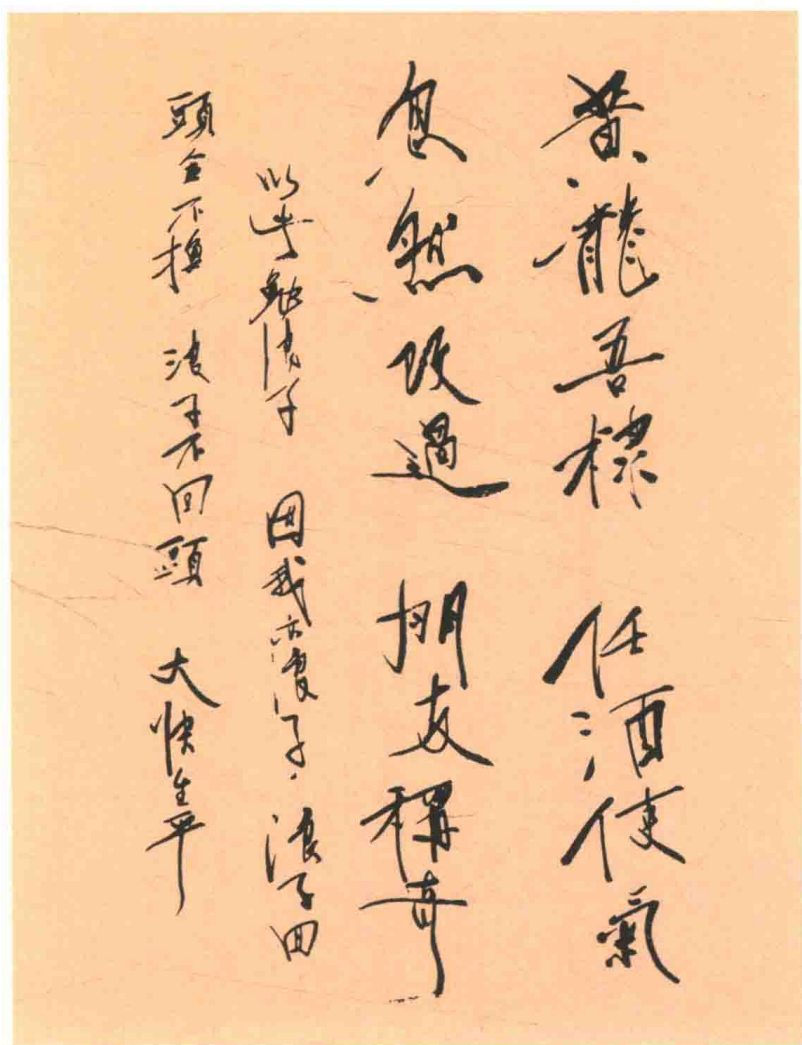 黄龍吾棣 任酒使氣
忽然改過 朋友稱奇
以此勉浪子 因我亦浪子，浪子回
頭金不換 浪子不回頭 大快生平